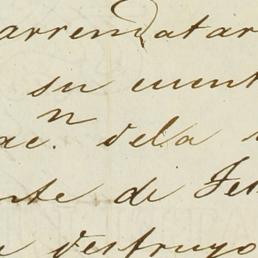 arrendatar
su cuent
n
ac. dela
nte de Fe
destruyo